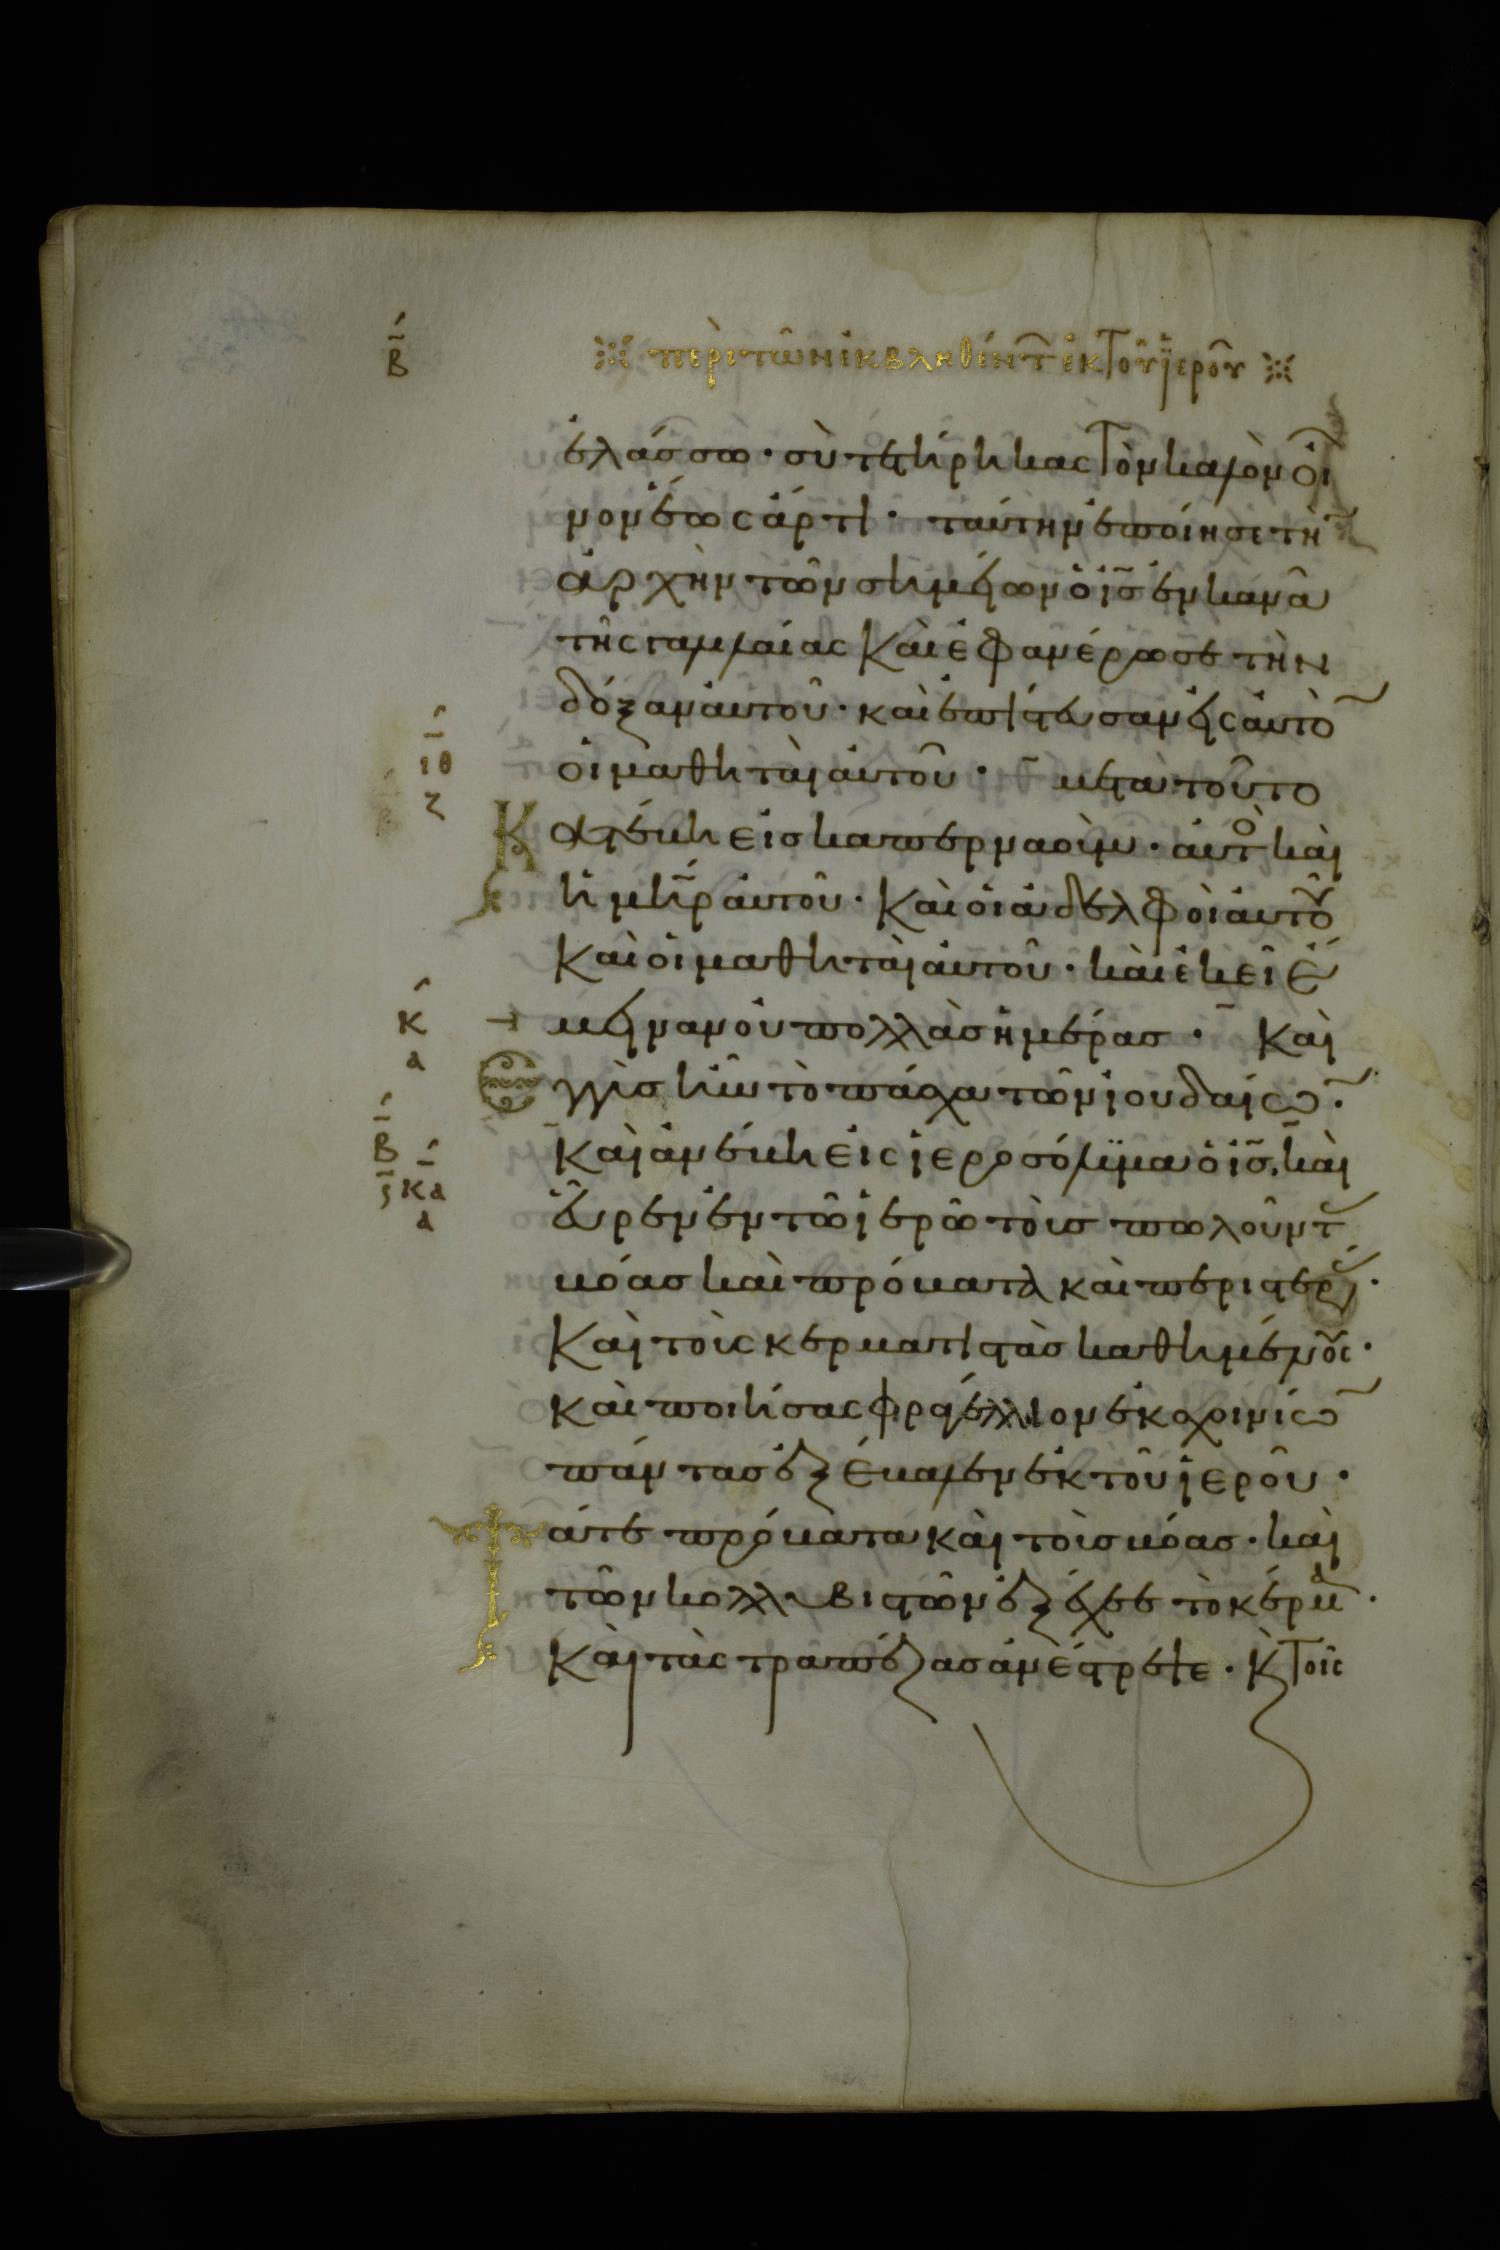 Β
περὶ τῶν ἐκβληθέντ ἐκ τοῦ ἱεροῦ
ἐλάσσω · σὺ τετήρηκας τὸν καλὸν οἶ
νον ἕως ἄρτι · ταύτην ἐποίησε τὴ
ἀρχὴν τῶν σημείων ὁ ι̅ς̅ ἐν κανᾶ
τῆς γαλιλαίας καὶ ἐφανέρωσε τὴν
δόξαν αὐτοῦ · καὶ ἐπίστευσαν εἰς αὐτὸ
ιθ
ζ
οἱ μαθηταὶ αὐτοῦ · μετὰ τοῦτο
Κατέβη εἰς καπερναοὺμ · αὐτὸ καὶ
ἡ μ̅η̅ρ̅ αὐτοῦ · καὶ οἱ ἀδελφοὶ αὐτοῦ
καὶ οἱ μαθηταὶ αὐτοῦ · καὶ ἐκεῖ ἔ
Κ
α
μειναν οὐ πολλὰς ἡμέρας · Καὶ
Ἐγγὺς ἦν τὸ πάσχα τῶν ἰουδαίω ·
Β
ς
κα
α
καὶ ἀνέβη εἰς ἱεροσόλυμα ὁ ι̅ς̅. καὶ
εὗρεν ἐν τῶ ἱερῶ τοὺς πωλοῦντ
βόας καὶ πρόβατα καὶ περιστερὰς ·
Καὶ τοὺς κερματιστὰς καθημένους ·
καὶ ποιήσας φραγέλλιον ἐκ σχοινίω
πάντας ἐξέβαλεν ἐκ τοῦ ἱεροῦ ·
Τάτε πρόβατα καὶ τοὺς βόας · καὶ
τῶν κολλυβιστῶν ἐξέχεε τὸ κέρμα ·
Καὶ τὰς τραπέζας ἀνέστρεψε · κ̀ τοῖς